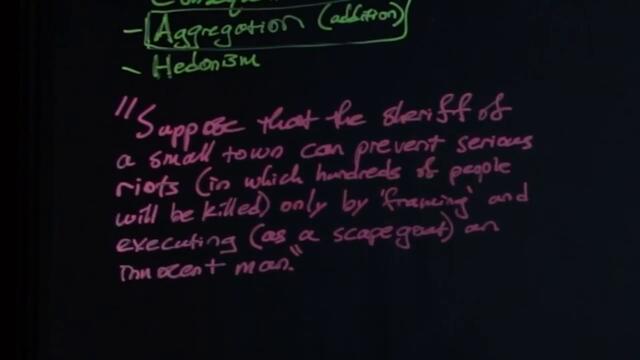 - Aggregation (addition)
- Hedonism
"Suppose that the sheriff of
a small town can prevent serious
riots (in which hundreds of people
will be killed) only by 'framing' and
executing (as a scapegoat) an
innocent man."